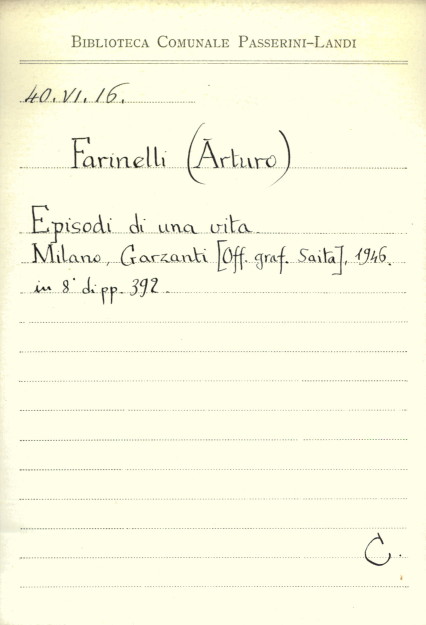 BIBLIOTECA COMUNALE PASSERINI-LANDI
40.VI.16.
Farinelli (Arturo)
Episodi di una vita.
Milano, Garzanti [Off. graf. Saita], 1946.
in 8° di pp. 392.
C.